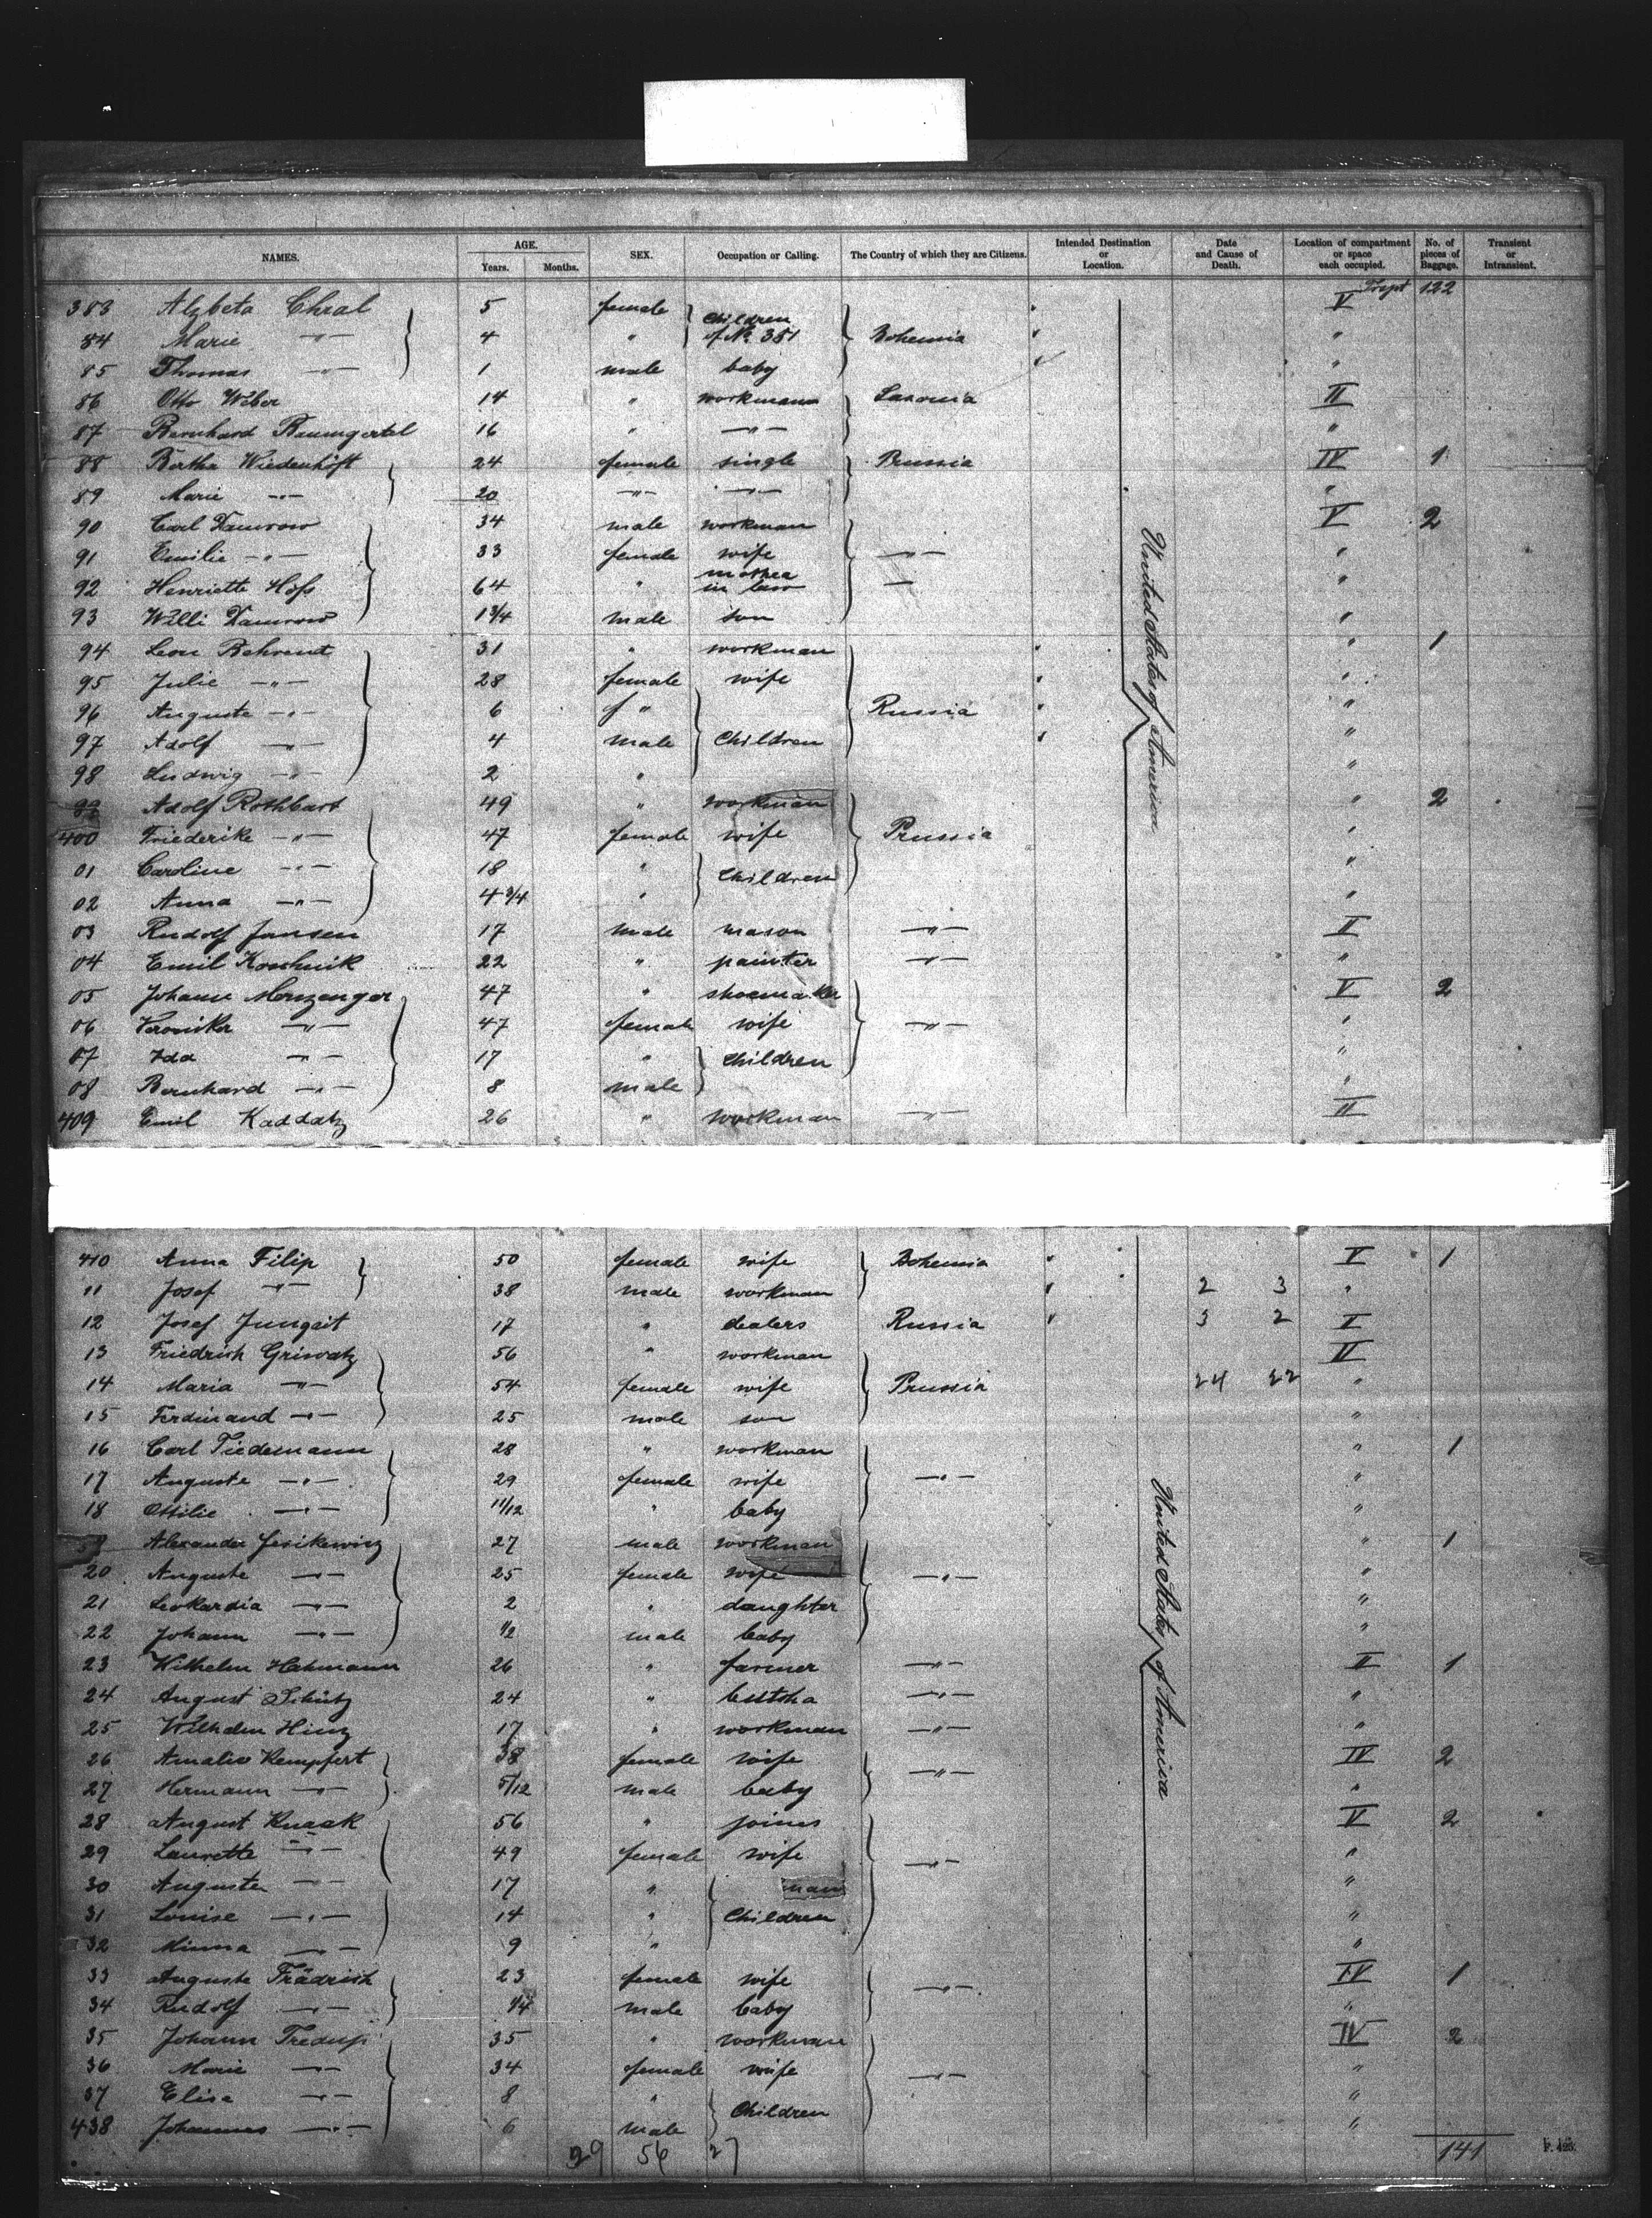 NAMES. AGE. Years. Months. SEX. Occupation or Calling. The Country of which they are Citizens. Intended Destination or Location. Date and Cause of Death. Location of compartment or space each occupied. No. of pieces of Baggage. Transient or Intransient.
Trspt 122
383 Alzbeta Chral 5 female Children of No 381 V
84 Marie -"- 4 " Bohemia "
85 Thomas -"- 1 male baby "
86 Otto Weber 14 " workman Saxonia II
87 Bernhard Baumgertel 16 " -"- "
88 Bertha Wiedenhöft 24 female single Prussia IV 1
89 Marie -"- 20 -"- -"- "
90 Carl Damrow 34 male workman V 2
91 Emilie -"- 33 female wife -"- "
92 Henriette Höfs 64 " mother in law - "
93 Willi Damrow 1 3/4 male son "
94 Leon Behrent 31 " workman " 1
95 Julie -"- 28 female wife "
96 Auguste -"- 6 f " Russia "
97 Adolf -"- 4 male Children "
98 Ludwig -"- 2 " "
99 Adolf Rothbart 49 " workman " 2
400 Friederike -"- 47 female wife Prussia "
01 Caroline -"- 18 " Children "
02 Anna -"- 4 3/4 " "
03 Rudolf Jansen 17 male mason -"- II
04 Emil Koschnik 22 " painter -"- "
05 Johann Menzenger 47 " shoemaker V 2
06 Veronika -"- 47 female wife -"- "
07 Ida -"- 17 " Children "
08 Bernhard -"- 8 male "
409 Emil Kaddatz 26 " workman -"- II
United States of America
410 Anna Filip 50 female wife Bohemia V 1
11 Josef -"- 38 male workman 2 3 "
12 Josef Jungait 17 " dealers Russia 3 2 II
13 Friedrich Griwatz 56 " workman II
14 Maria -"- 54 female wife Prussia 24 22 "
15 Ferdinand -"- 25 male son "
16 Carl Tiedemann 28 " workman " 1
17 Auguste -"- 29 female wife -"- "
18 Ottilie -"- 11/12 " baby "
Alexander Jesikewicz 27 male workman " 1
20 Auguste -"- 25 female wife -"- "
21 Leokardia -"- 2 " daughter "
22 Johann -"- 1/2 male baby "
23 Wilhelm Hahmann 26 " farmer -"- II 1
24 August Schütz 24 " butcha -"- "
25 Wilhelm Hinz 17 " workman -"- "
26 Amalie Kempfert 38 female wife -"- IV 2
27 Hermann -"- 5/12 male baby "
28 August Knaak 56 " joines V 2
29 Laurette -"- 49 female wife -"- "
30 Auguste -"- 17 " man "
31 Louise -"- 14 " Children "
32 Minna -"- 9 " "
33 Auguste Frädrich 23 female wife -"- IV 1
34 Rudolf -"- 1/4 male baby "
35 Johann Tredup 35 " workman IV 2
36 Marie -"- 34 female wife -"- "
37 Elisa -"- 8 " Children "
438 Johannes -"- 6 male "
United States of America
29 56 27 141